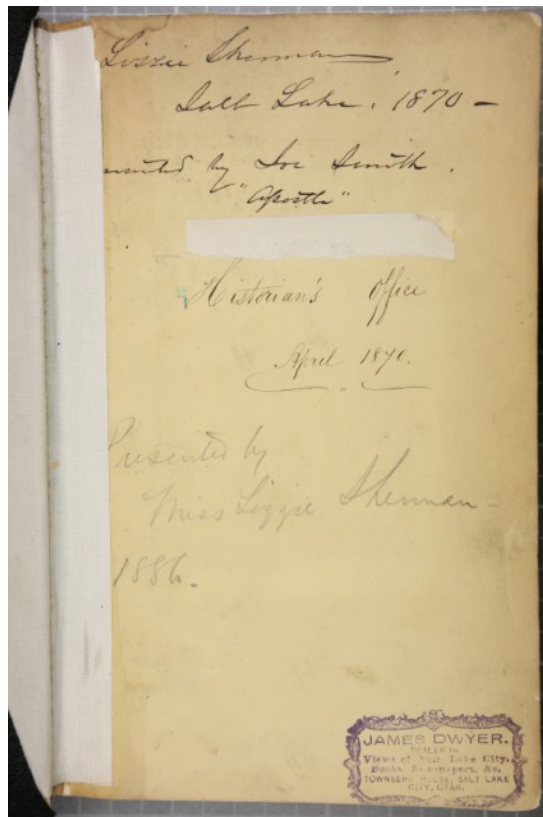 Lizzie Sherman
Salt Lake, 1870 –
sented by Joe Smith.
"Apostle"
Historian's Office
April 1870.
Presented by
Miss Lizzie Sherman –
1886.
JAMES DWYER.
DEALER IN
Views of Salt Lake City,
Books, Newspapers, &c.
TOWNSEND HOUSE, SALT LAKE
CITY, UTAH.